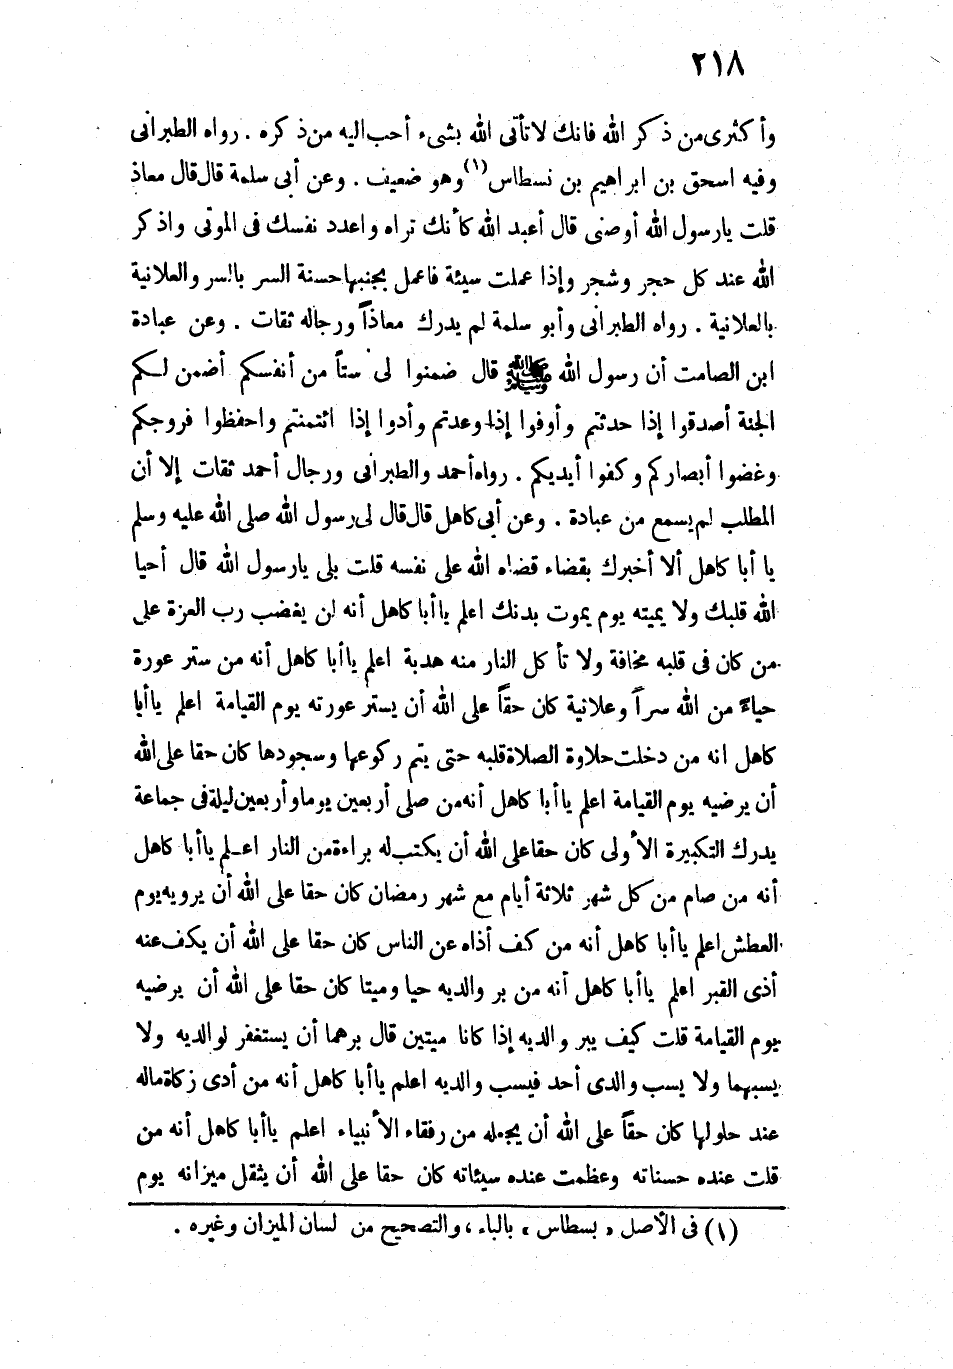 ٢١٨
وأكثرى من ذكر الله فانك لا تأتى الله بشىء أحب اليه من ذكره . رواه الطبرانى
وفيه اسحق بن ابراهيم بن نسطاس (١) وهو ضعيف . وعن أبى سلمة قال قال معاذ
قلت يا رسول الله أوصنى قال أعبد الله كأنك تراه واعدد نفسك فى الموتى واذكر
الله عند كل حجر وشجر وإذا عملت سيئة فاعمل بجنبها حسنة السر بالسر والعلانية
بالعلانية . رواه الطبرانى وأبو سلمة لم يدرك معاذاً ورجاله ثقات . وعن عبادة
ابن الصامت أن رسول الله ﷺ قال ضمنوا لى ستاً من أنفسكم أضمن لكم
الجنة أصدقوا إذا حدثتم وأوفوا إذا وعدتم وأدوا إذا ائتمنتم واحفظوا فروجكم
وغضوا أبصاركم وكفوا أيديكم . رواه أحمد والطبرانى ورجال أحمد ثقات إلا أن
المطلب لم يسمع من عبادة . وعن أبى كاهل قال قال لى رسول الله صلى الله عليه وسلم
يا أبا كاهل ألا أخبرك بقضاء قضاه الله على نفسه قلت بلى يا رسول الله قال أحيا
الله قلبك ولا يميته يوم يموت بدنك اعلم يا أبا كاهل أنه لن يغضب رب العزة على
من كان فى قلبه مخافة ولا تأكل النار منه هدبة اعلم يا أبا كاهل أنه من ستر عورة
حياءً من الله سراً وعلانية كان حقاً على الله أن يستر عورته يوم القيامة اعلم يا أبا
كاهل انه من دخلت حلاوة الصلاة قلبه حتى يتم ركوعها وسجودها كان حقا على الله
أن يرضيه يوم القيامة اعلم يا أبا كاهل أنه من صلى أربعين يوما وأربعين ليلة فى جماعة
يدرك التكبيرة الأولى كان حقا على الله أن يكتب له براءة من النار اعلم يا أبا كاهل
أنه من صام من كل شهر ثلاثة أيام مع شهر رمضان كان حقا على الله أن يرويه يوم
العطش اعلم يا أبا كاهل أنه من كف أذاه عن الناس كان حقا على الله أن يكف عنه
أذى القبر اعلم يا أبا كاهل أنه من بر والديه حيا وميتا كان حقا على الله أن يرضيه
يوم القيامة قلت كيف يبر والديه إذا كانا ميتين قال برهما أن يستغفر لوالديه ولا
يسبهما ولا يسب والدى أحد فيسب والديه اعلم يا أبا كاهل أنه من أدى زكاة ماله
عند حلولها كان حقاً على الله أن يجعله من رفقاء الأنبياء اعلم يا أبا كاهل أنه من
قلت عنده حسناته وعظمت عنده سيئاته كان حقا على الله أن يثقل ميزانه يوم
(١) فى الأصل «بسطاس» بالباء، والتصحيح من لسان الميزان وغيره .